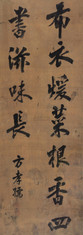 布衣暖菜根香四
書滋味長
方孝孺